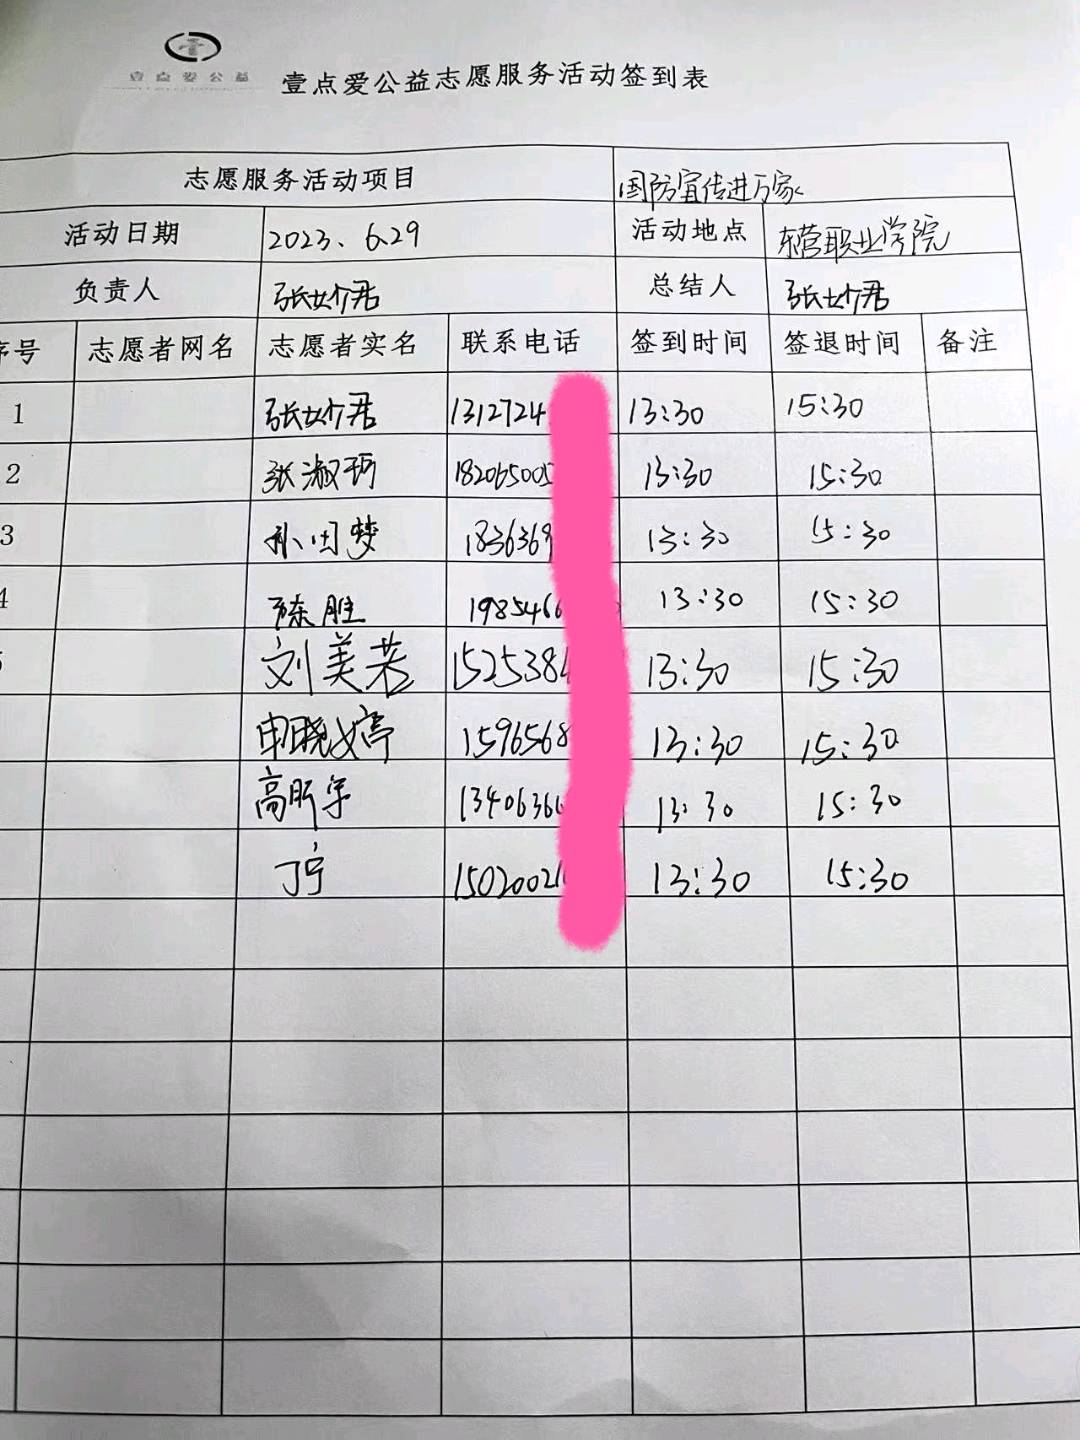 壹点爱公益
壹点爱公益志愿服务活动签到表
志愿服务活动项目 国防宣传进万家
活动日期 2023、6.29 活动地点 东营职业学院
负责人 张妎君 总结人 张妎君
序号 志愿者网名 志愿者实名 联系电话 签到时间 签退时间 备注
1 张妎君 1312724 13:30 15:30
2 张淑 18206500 13:30 15:30
3 孙田梦 1836369 13:30 15:30
4 陈胜 1985466 13:30 15:30
刘美若 1525384 13:30 15:30
申晓婷 1596568 13:30 15:30
高昕宇 1340636 13:30 15:30
丁宁 1502002 13:30 15:30